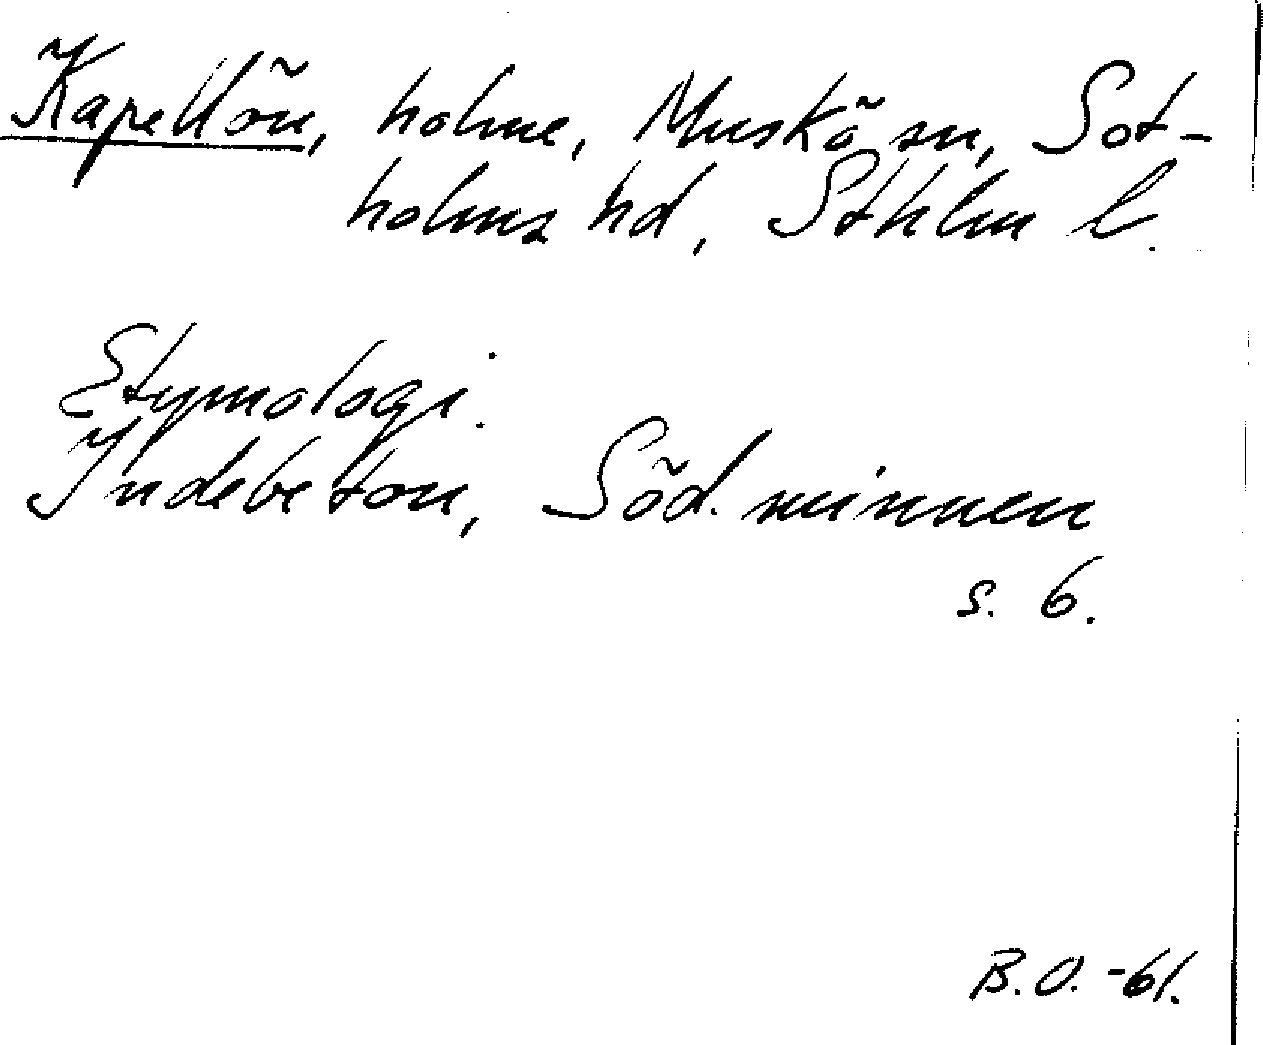 Kapellön, holme, Muskö sn, Sot-
holms hd, Sthlm l.
Etymologi.
Indebetou, Söd. minnen
s. 6.
B.O. -61.